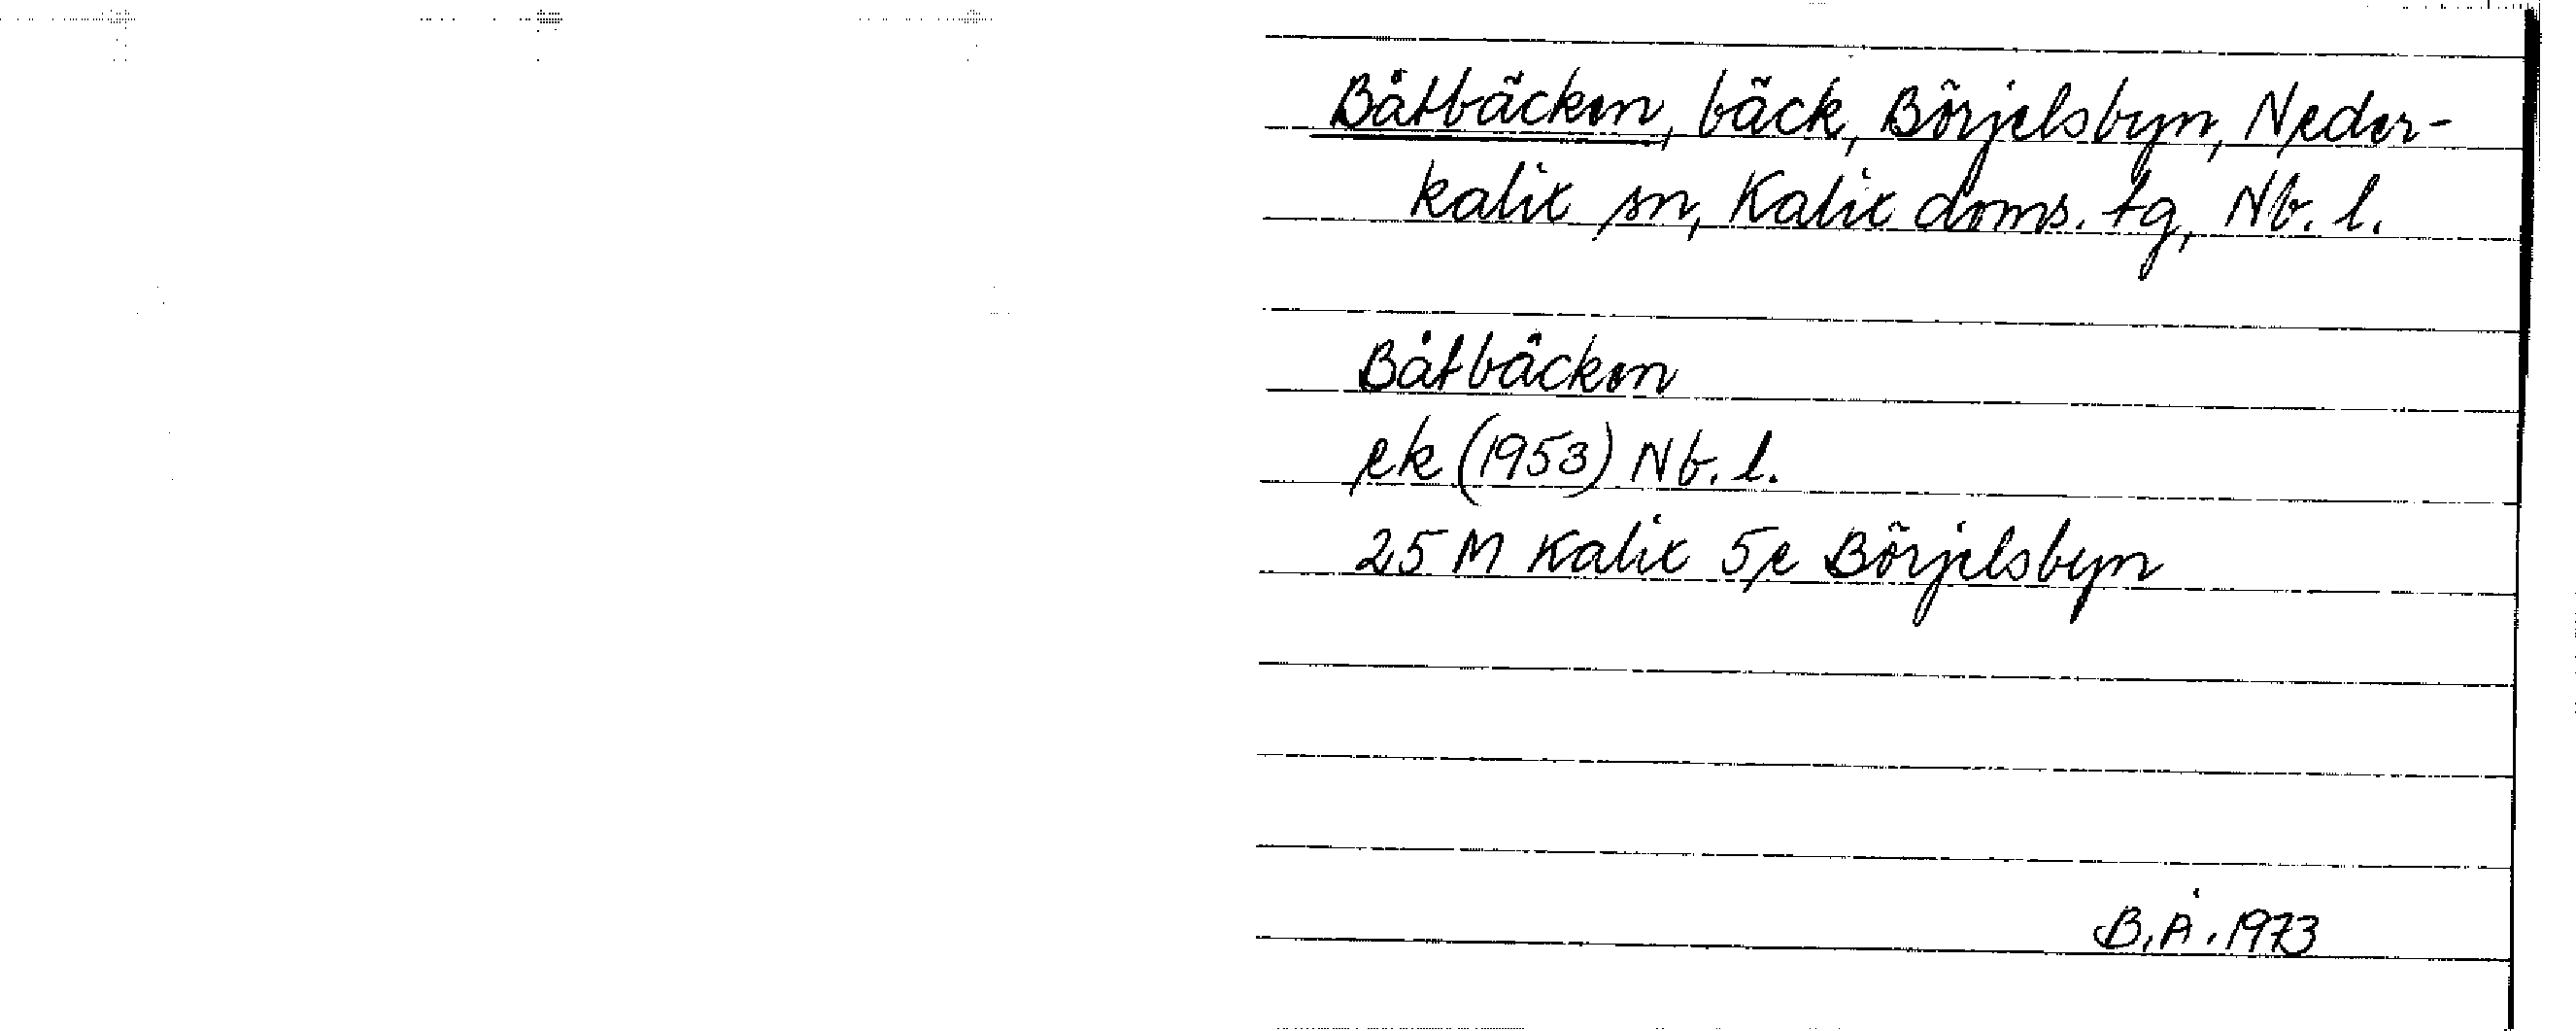 Båtbäcken, bäck, Börjelsbyn, Neder-
kalix sn, Kalix doms. tg, Nb. l.
Båtbäcken
ek (1953) Nb. l.
25 M Kalix 5e Börjelsbyn
B.Å. 1973